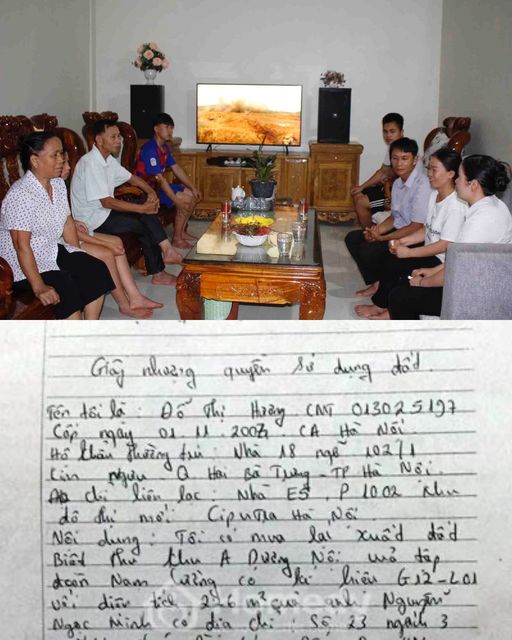 Giấy nhượng quyền sử dụng đất.
Tên tôi là: Đỗ Thị Hường. CMT 013025197
Cấp ngày 01.11.2007. CA Hà Nội.
Hộ khẩu thường trú: Nhà 18 ngõ 102/1
Q Hai Bà Trưng - TP Hà Nội.
Địa chỉ liên lạc: Nhà E5, P1002 khu
đô thị mới Ciputra Hà Nội
Nội dung: Tôi có mua lại xuất đất
Biệt thự khu A Dương Nội của tập
đoàn Nam Cường có kí hiệu G12-L01
với diện tích 226 m² của anh Nguyễn
Ngọc Minh có địa chỉ Số 23 ngách 3
Homedy